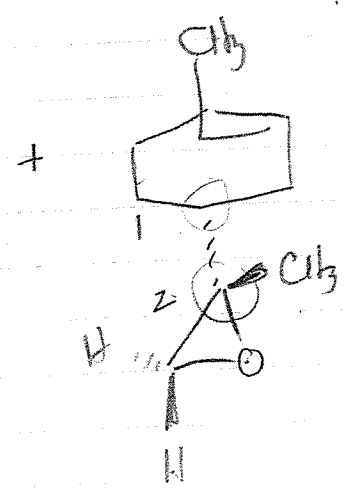 CH3
+
1
CH3
2
H
O
H